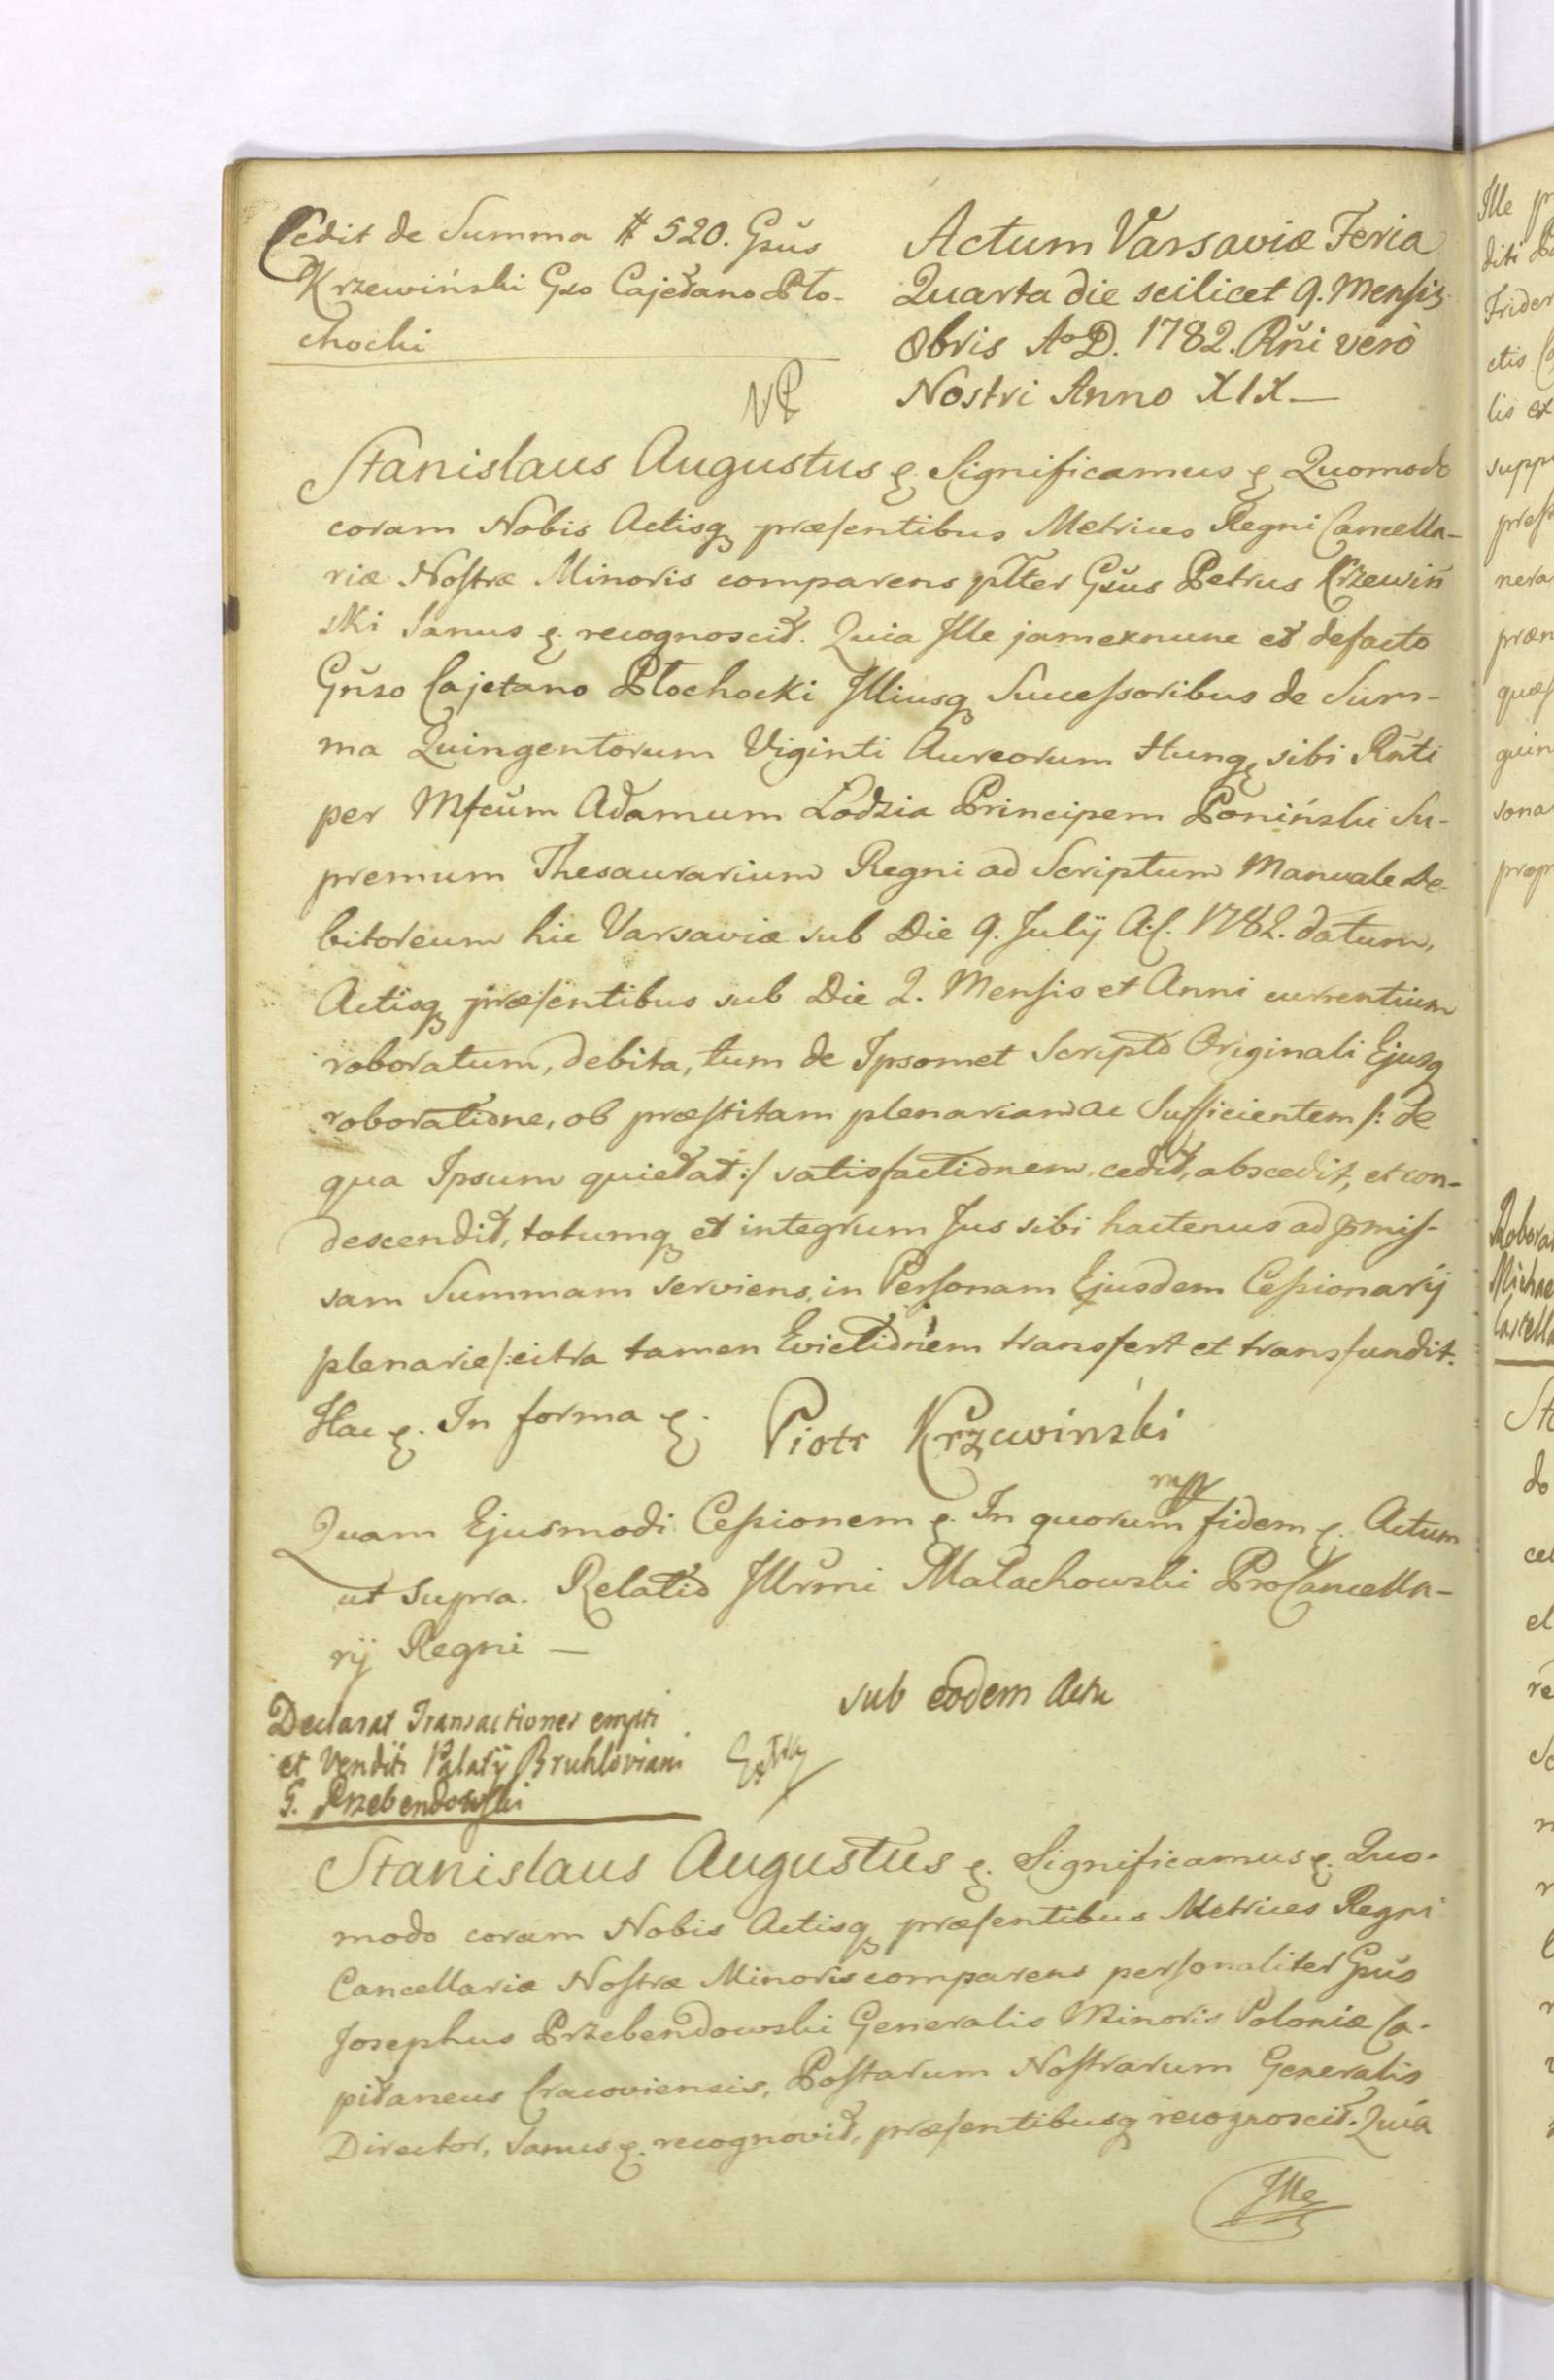 Cedit de Summa # 520. Gsus
Krzewiński Gso Cajetano Pło-
chocki
Actum Varsaviæ Feria
Quarta die scilicet 9. Mensis
8bris Ao D. 1782. Rñi verò
Nostri Anno XIX
Stanislaus Augustus &. Significamus & Quomodo
coram Nobis Actisq præsentibus Metrices Regni Cancella-
riæ Nostræ Minoris comparens plter Gsus Petrus Krzewiń
ski Sanus &. recognoscit. Quia Ille jam exnunc et defacto
Gñso Cajetano Płochocki Illiusq Successoribus de Sum-
ma Quingentorum Viginti Aureorum Hung. sibi Rñti
per Mfcum Adamum Łodzia Principem Poniński Su-
premum Thesaurarium Regni ad Scriptum Manuale De-
bitoreum hic Varsaviæ sub Die 9. Julÿ A:C. 1782. datum,
Actisq præsentibus sub Die 2. Mensis et Anni currentium
roboratum, debita, tum de Ipsomet Scripto Originali Ejusq
roboratione, ob præstitam plenariam ac Sufficientem /: de
qua Ipsum quietat :/ satisfactionem, cedit, abscedit, et con-
descendit, totumq et integrum Jus sibi hactenus ad pmis-
sam Summam serviens, in Personam Ejusdem Cessionarÿ
plenarie /: citra tamen Evictionem transfert et transfundit.
Hac &. In forma &. Piotr Krzewiński
mpp
Quam Ejusmodi Cessionem &. In quorum fidem &. Actum
ut Supra. Relatio Illrmi Małachowski ProCancella-
rÿ Regni —
Declarat Transactiones empti
et Venditi Palatÿ Bruhloviani
G. Przebendowski
sub eodem Actu
Stanislaus Augustus &. Significamus &. Quo-
modo coram Nobis Actisq præsentibus Metrices Regni
Cancellariæ Nostræ Minoris comparens personaliter Gsus
Josephus Przebendowski Generalis Minoris Poloniæ Ca-
pitaneus Cracoviensis, Postarum Nostrarum Generalis
Director, Sanus &. recognovit, præsentibusq recognoscit. Quia
Ille